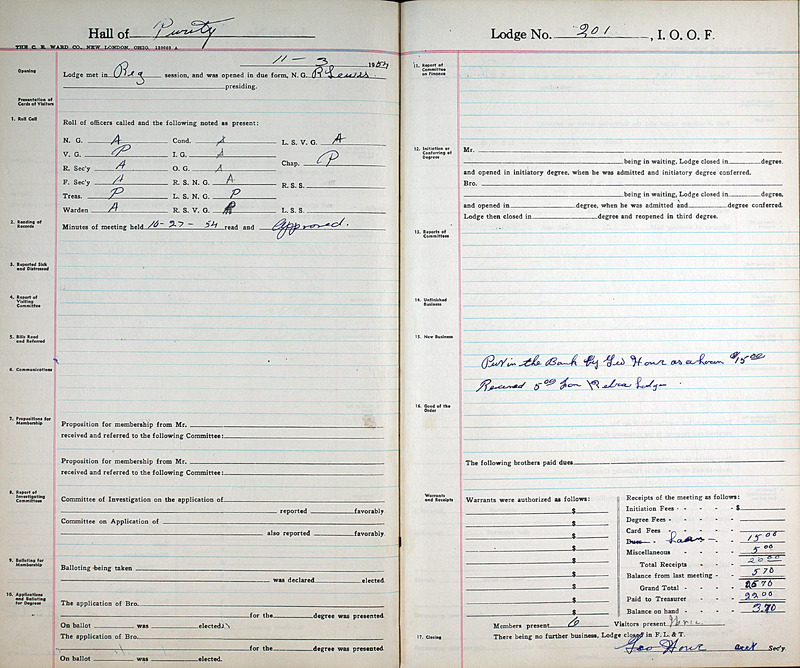 Hall of Purity
THE C. E. WARD CO., NEW LONDON, OHIO.
11 - 3 1954
Opening
Lodge met in Reg session, and was opened in due form, N. G. R Lewis
presiding.
Presentation of Cards of Visitors
1. Roll Call
Roll of officers called and the following noted as present:
N. G. A Cond. A L. S. V. G. A
V. G. P I. G. A Chap. P
R. Sec'y A O. G. A
F. Sec'y A R. S. N. G. A R. S. S.
Treas. P L. S. N. G. P
Warden A R. S. V. G. L. S. S.
2. Reading of Records
Minutes of meeting held 10-27-54 read and approved.
3. Reported Sick and Distressed
4. Report of Visiting Committee
5. Bills Read and Referred
6. Communications
7. Propositions for Membership
Proposition for membership from Mr.
received and referred to the following Committee:
Proposition for membership from Mr.
received and referred to the following Committee:
8. Report of Investigating Committees
Committee of Investigation on the application of
reported favorably
Committee on Application of
also reported favorably.
9. Balloting for Membership
Balloting being taken
was declared elected.
10. Applications and Balloting for Degrees
The application of Bro.
for the degree was presented.
On ballot was elected.
The application of Bro.
for the degree was presented
On ballot was elected.
Lodge No. 201, I. O. O. F.
11. Report of Committee on Finance
12. Initiation or Conferring of Degrees
Mr.
being in waiting, Lodge closed in degree,
and opened in initiatory degree, when he was admitted and initiatory degree conferred.
Bro.
being in waiting, Lodge closed in degree,
and opened in degree, when he was admitted and degree conferred.
Lodge then closed in degree and reopened in third degree.
13. Reports of Committees
14. Unfinished Business
15. New Business
Put in the Bank by Geo Hour as a loan $15.00
Received 5.00 from Lodge
16. Good of the Order
The following brothers paid dues
Warrants and Receipts
Warrants were authorized as follows:
$
$
$
$
$
$
$
$
$
Receipts of the meeting as follows:
Initiation Fees - $
Degree Fees -
Card Fees -
Dues - Loan 15 00
Miscellaneous - 5 00
Total Receipts - 20 00
Balance from last meeting - 5 70
Grand Total - 25 70
Paid to Treasurer - 22 00
Balance on hand - 3.70
Members present 6 Visitors present None
17. Closing
There being no further business, Lodge closed in F. L. & T.
Geo Hour Sec'y.